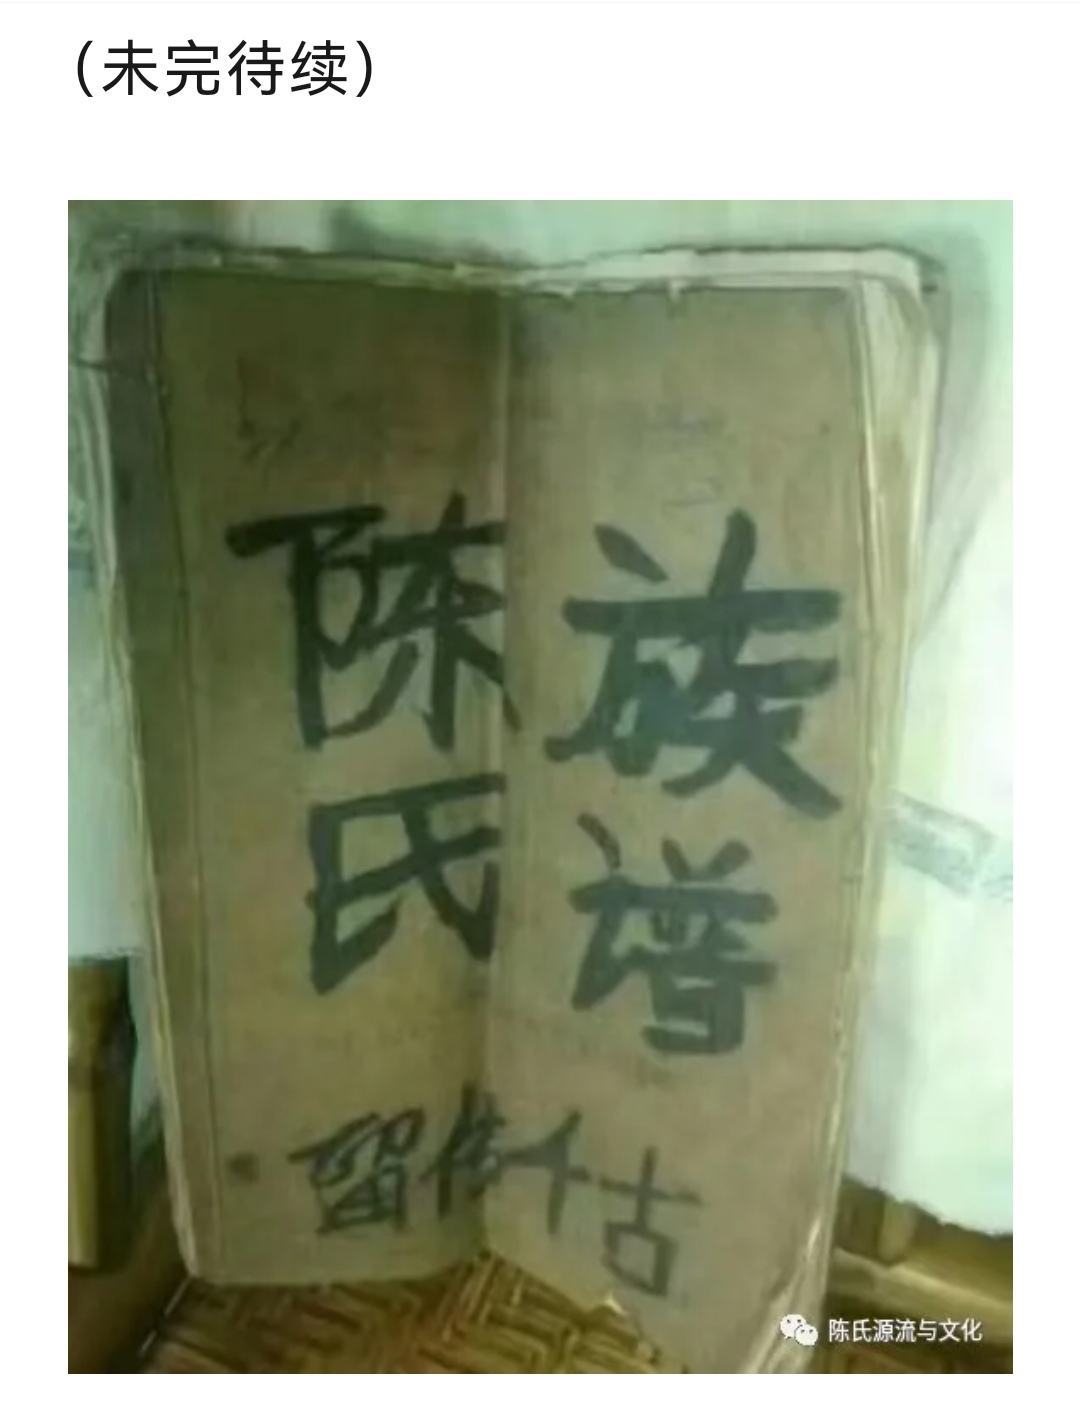 （未完待续）
陈氏
族谱
留传千古
陈氏源流与文化